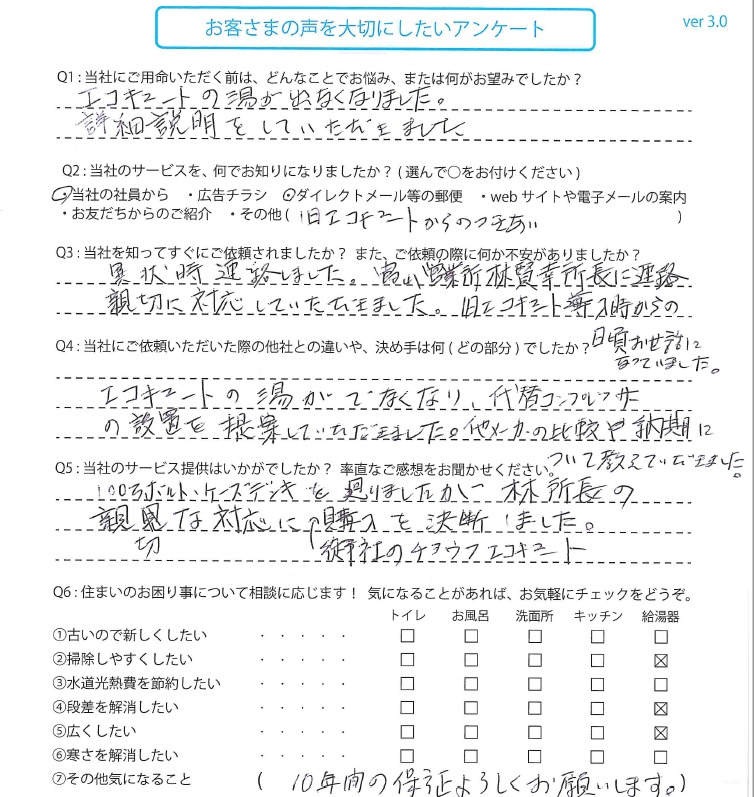 お客さまの声を大切にしたいアンケート
ver 3.0
Q1：当社にご用命いただく前は、どんなことでお悩み、または何がお望みでしたか？
エコキュートの湯が出なくなりました。
詳細説明をしていただきました
Q2：当社のサービスを、何でお知りになりましたか？(選んで○をお付けください)
・当社の社員から ・広告チラシ ・ダイレクトメール等の郵便 ・webサイトや電子メールの案内
・お友だちからのご紹介 ・その他( 旧エコキュートからのつきあい )
Q3：当社を知ってすぐにご依頼されましたか？ また、ご依頼の際に何か不安がありましたか？
異状時連絡しました。営業所林営業所長に連絡
親切に対応していただきました。旧エコキュート購入時からの
日頃お世話に
なっていました。
Q4：当社にご依頼いただいた際の他社との違いや、決め手は何(どの部分)でしたか？
エコキュートの湯がでなくなり、代替コンプレッサ
の設置を提案していただきました。他メーカーの比較や納期に
ついて教えていただきました。
Q5：当社のサービス提供はいかがでしたか？ 率直なご感想をお聞かせください。
100満ボルト、ケーズデンキを廻りましたが 林所長の
親切な対応に購入を決断しました。
御社のチョウフエコキュート
Q6：住まいのお困り事について相談に応じます！ 気になることがあれば、お気軽にチェックをどうぞ。
トイレ お風呂 洗面所 キッチン 給湯器
①古いので新しくしたい ・・・・・ □ □ □ □ □
②掃除しやすくしたい ・・・・・ □ □ □ □ ☒
③水道光熱費を節約したい ・・・・ □ □ □ □ □
④段差を解消したい ・・・・・ □ □ □ □ ☒
⑤広くしたい ・・・・・ □ □ □ □ ☒
⑥寒さを解消したい ・・・・・ □ □ □ □ □
⑦その他気になること ( 10年間の保証よろしくお願いします。)